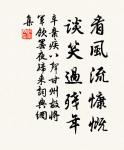 看風流慷慨
談笑過殘年
辛棄疾八聲甘州故將
軍飲罷夜歸來詞典網
集